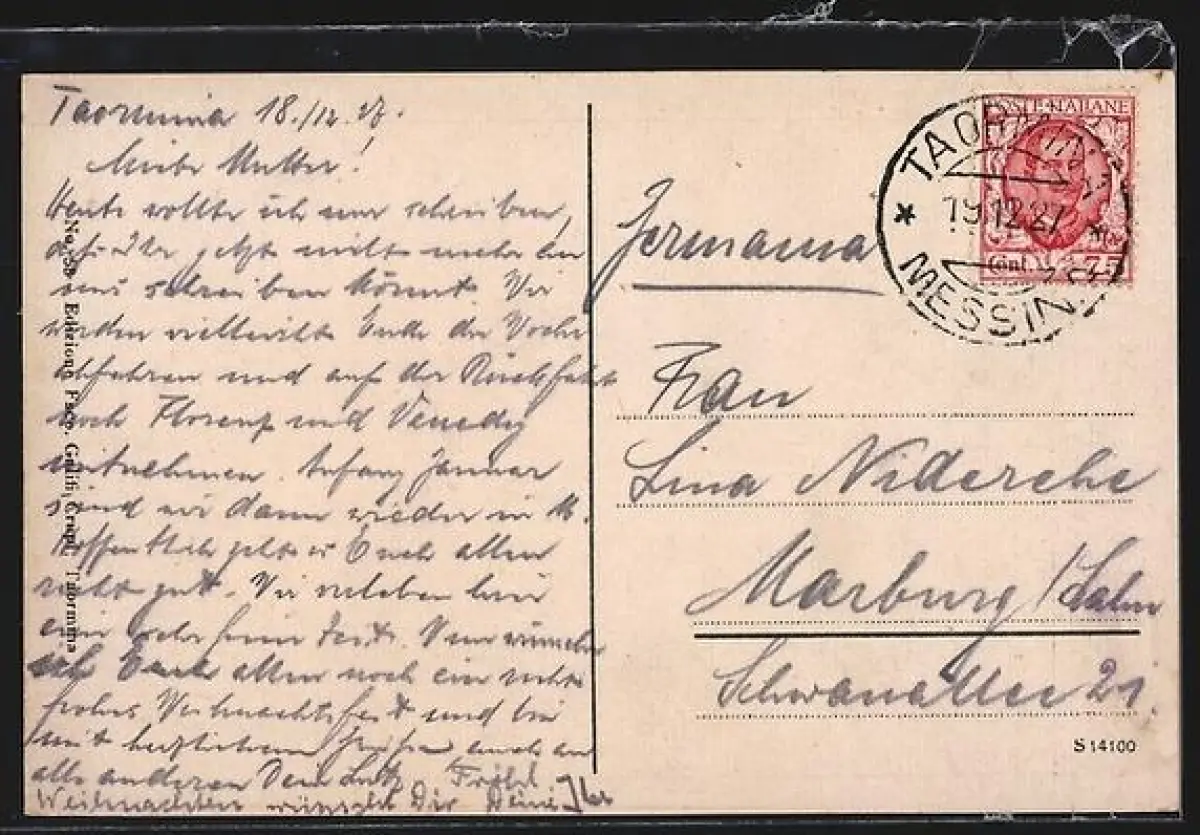 Taormina 18./12.27.
Liebe Mutter!
Heute wollte ich nur schreiben,
daß Ihr jetzt nicht mehr an
uns schreiben könnt. Wir
werden vielleicht Ende der Woche
abfahren und auf der Rückfahrt
noch Florenz und Venedig
mitnehmen. Anfang Januar
sind wir dann wieder in M.
Hoffentlich geht es Euch allen
recht gut. Wir verleben hier
eine sehr feine Zeit. Nun wünsche
ich Euch allen noch ein recht
frohes Weihnachtsfest und bin
mit herzlichem Grüßen auch an
alle anderen Dein Lutz Fröhl.
Weihnachten wünscht Dir Deine Ilse
No. Edizione Taormina
POSTE ITALIANE
Cent. 75
TAORMINA
19.12.27
MESSINA
Germania
Frau
Lina Nidereche
Marburg / Lahn
Schwanallee 21.
S 14100